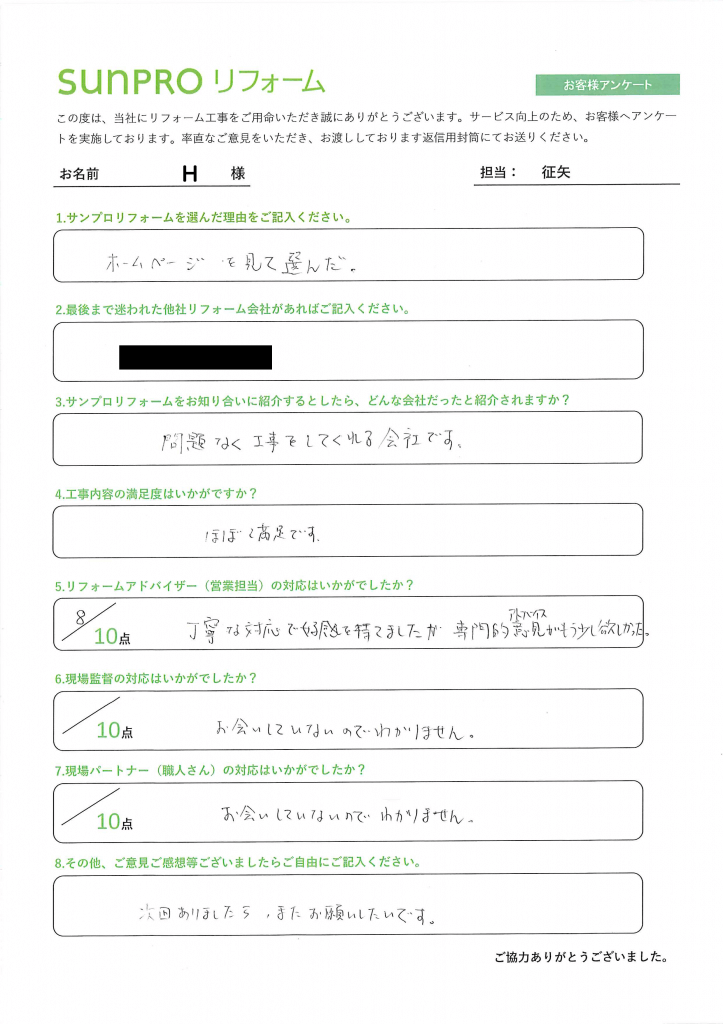 sunpro リフォーム
お客様アンケート
この度は、当社にリフォーム工事をご用命いただき誠にありがとうございます。サービス向上のため、お客様へアンケー
トを実施しております。率直なご意見をいただき、お渡ししております返信用封筒にてお送りください。
お名前 H 様 担当： 征矢
1.サンプロリフォームを選んだ理由をご記入ください。
ホームページを見て選んだ。
2.最後まで迷われた他社リフォーム会社があればご記入ください。
3.サンプロリフォームをお知り合いに紹介するとしたら、どんな会社だったと紹介されますか？
問題なく工事をしてくれる会社です。
4.工事内容の満足度はいかがですか？
ほぼ満足です。
5.リフォームアドバイザー（営業担当）の対応はいかがでしたか？
アドバイス
8/10点 丁寧な対応で好感を持てましたが専門的意見がもう少し欲しかった。
6.現場監督の対応はいかがでしたか？
/10点 お会いしていないのでわかりません。
7.現場パートナー（職人さん）の対応はいかがでしたか？
/10点 お会いしていないのでわかりません。
8.その他、ご意見ご感想等ございましたらご自由にご記入ください。
次回ありましたら、またお願いしたいです。
ご協力ありがとうございました。